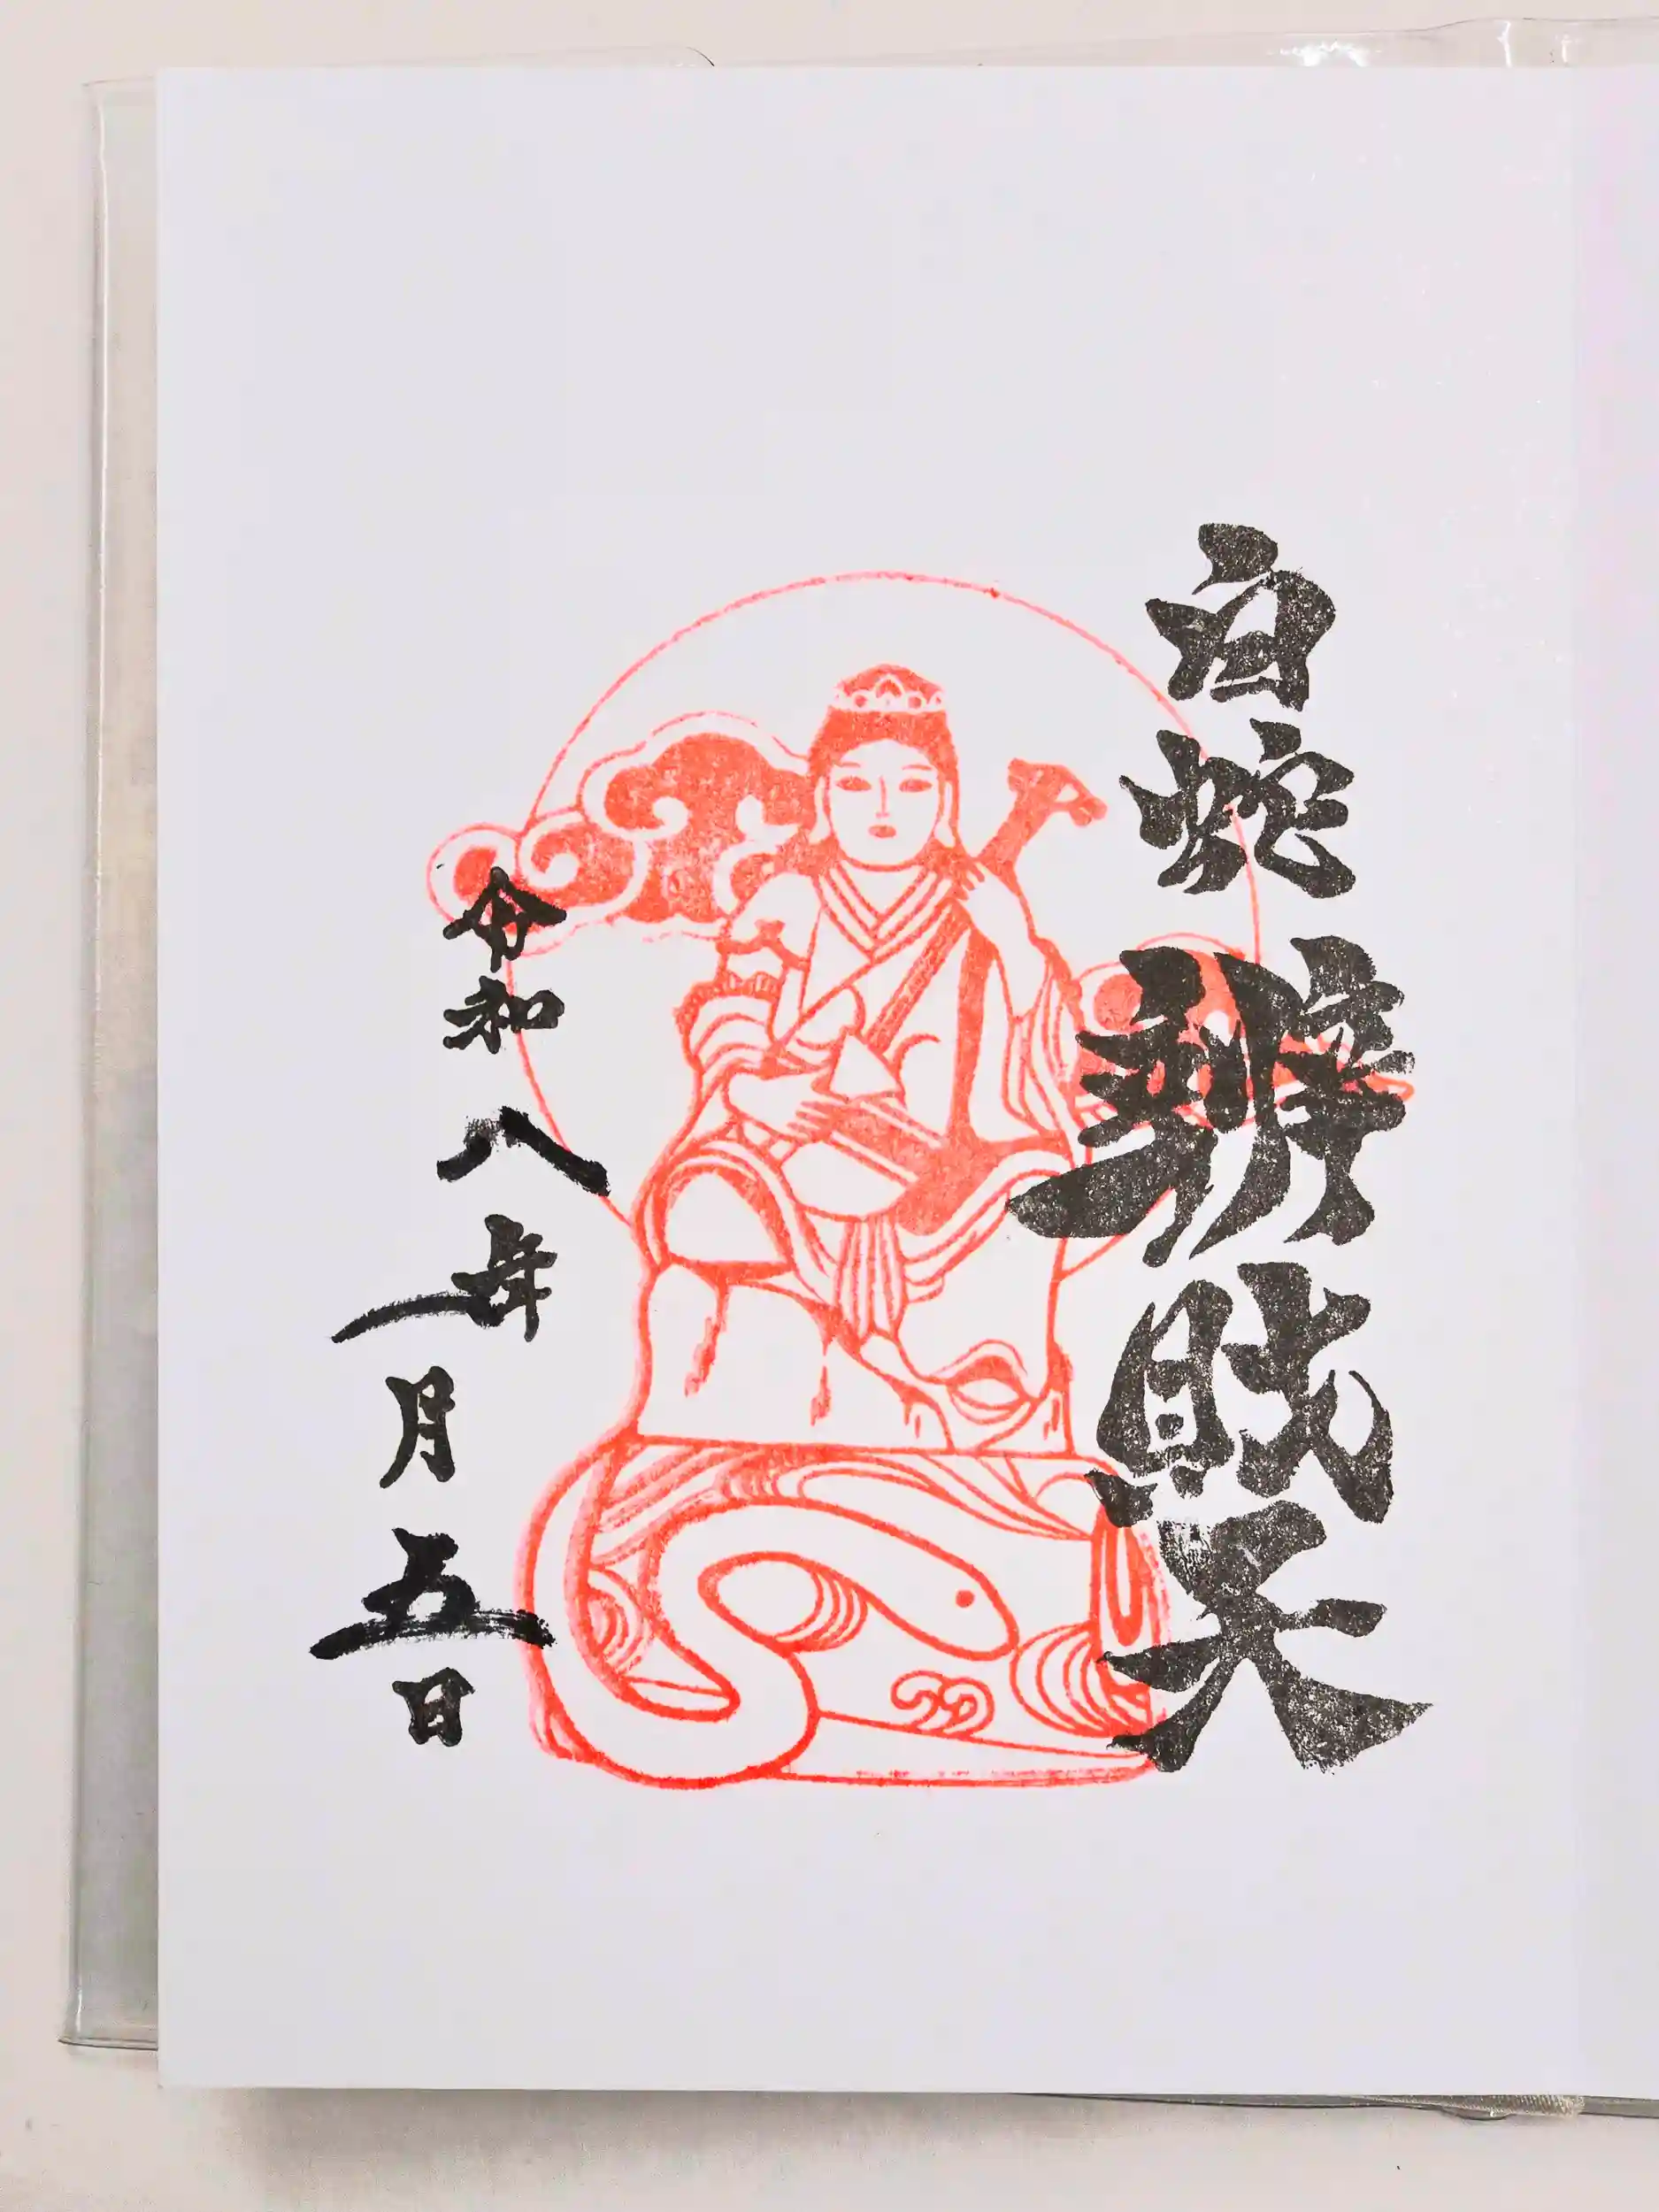 白蛇辨財天
令和八年一月五日